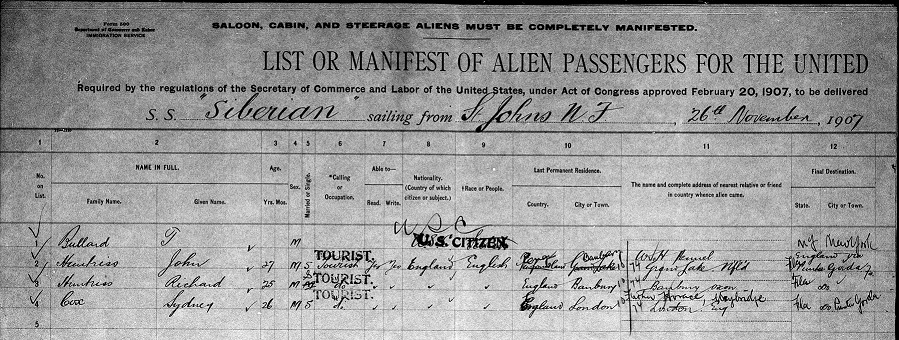 Form 500
Department of Commerce and Labor
IMMIGRATION SERVICE
SALOON, CABIN, AND STEERAGE ALIENS MUST BE COMPLETELY MANIFESTED.
LIST OR MANIFEST OF ALIEN PASSENGERS FOR THE UNITED
Required by the regulations of the Secretary of Commerce and Labor of the United States, under Act of Congress approved February 20, 1907, to be delivered
S. S. "Siberian" sailing from St. Johns N F, 26th November, 1907
1 2 3 4 5 6 7 8 9 10 11 12
No. on List. NAME IN FULL. Age. Sex. Married or Single. *Calling or Occupation. Able to— Nationality. (Country of which citizen or subject.) †Race or People. Last Permanent Residence. The name and complete address of nearest relative or friend in country whence alien came. Final Destination.
Family Name. Given Name. Yrs. Mos. Read. Write. Country. City or Town. State. City or Town.
U.S. CITIZEN
1 Bullard T M N.Y. New York
2 Huntress John 27 M S TOURIST. Tourist Yes Yes England English Banbury W H Grand Lake Nfld England via Punta Gorda
3 Huntress Richard 25 M TOURIST. do " " " " England Banbury Banbury Fla do
4 Cox Sydney 26 M S TOURIST. do " " " " England London London Eng Fla do Punta Gorda
5